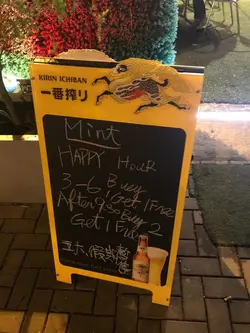 KIRIN ICHIBAN
一番搾り
Mint
HAPPY HOUR
3-6 Buy
1 Get 1 Free
After 9:30 Buy 2
Get 1 Free
五六,假期